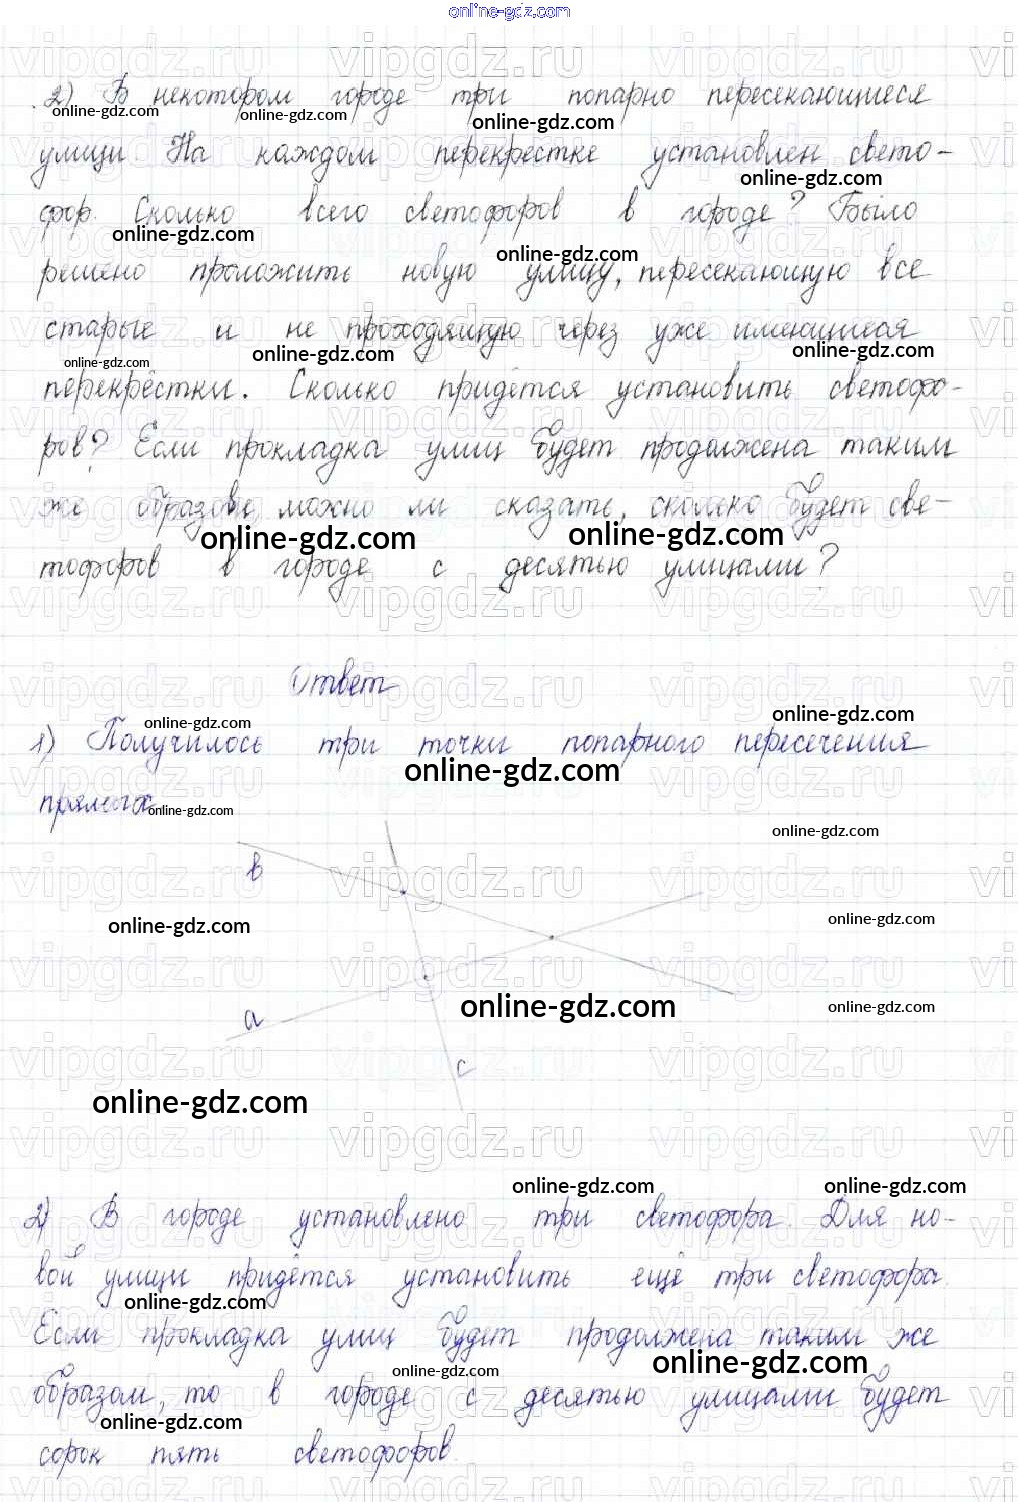 online-gdz.com
2) В некотором городе три попарно пересекающиеся
улицы. На каждом перекрестке установлен свето-
фор. Сколько всего светофоров в городе? Было
решено проложить новую улицу, пересекающую все
старые и не проходящую через уже имеющиеся
перекрёстки. Сколько придётся установить светофо-
ров? Если прокладка улиц будет продолжена таким
же образом, можно ли сказать, сколько будет све-
тофоров в городе с десятью улицами?
Ответ
1) Получилось три точки попарного пересечения
прямых
в
а
с
2) В городе установлено три светофора. Для но-
вой улицы придётся установить ещё три светофора.
Если прокладка улиц будет продолжена таким же
образом, то в городе с десятью улицами будет
сорок пять светофоров.